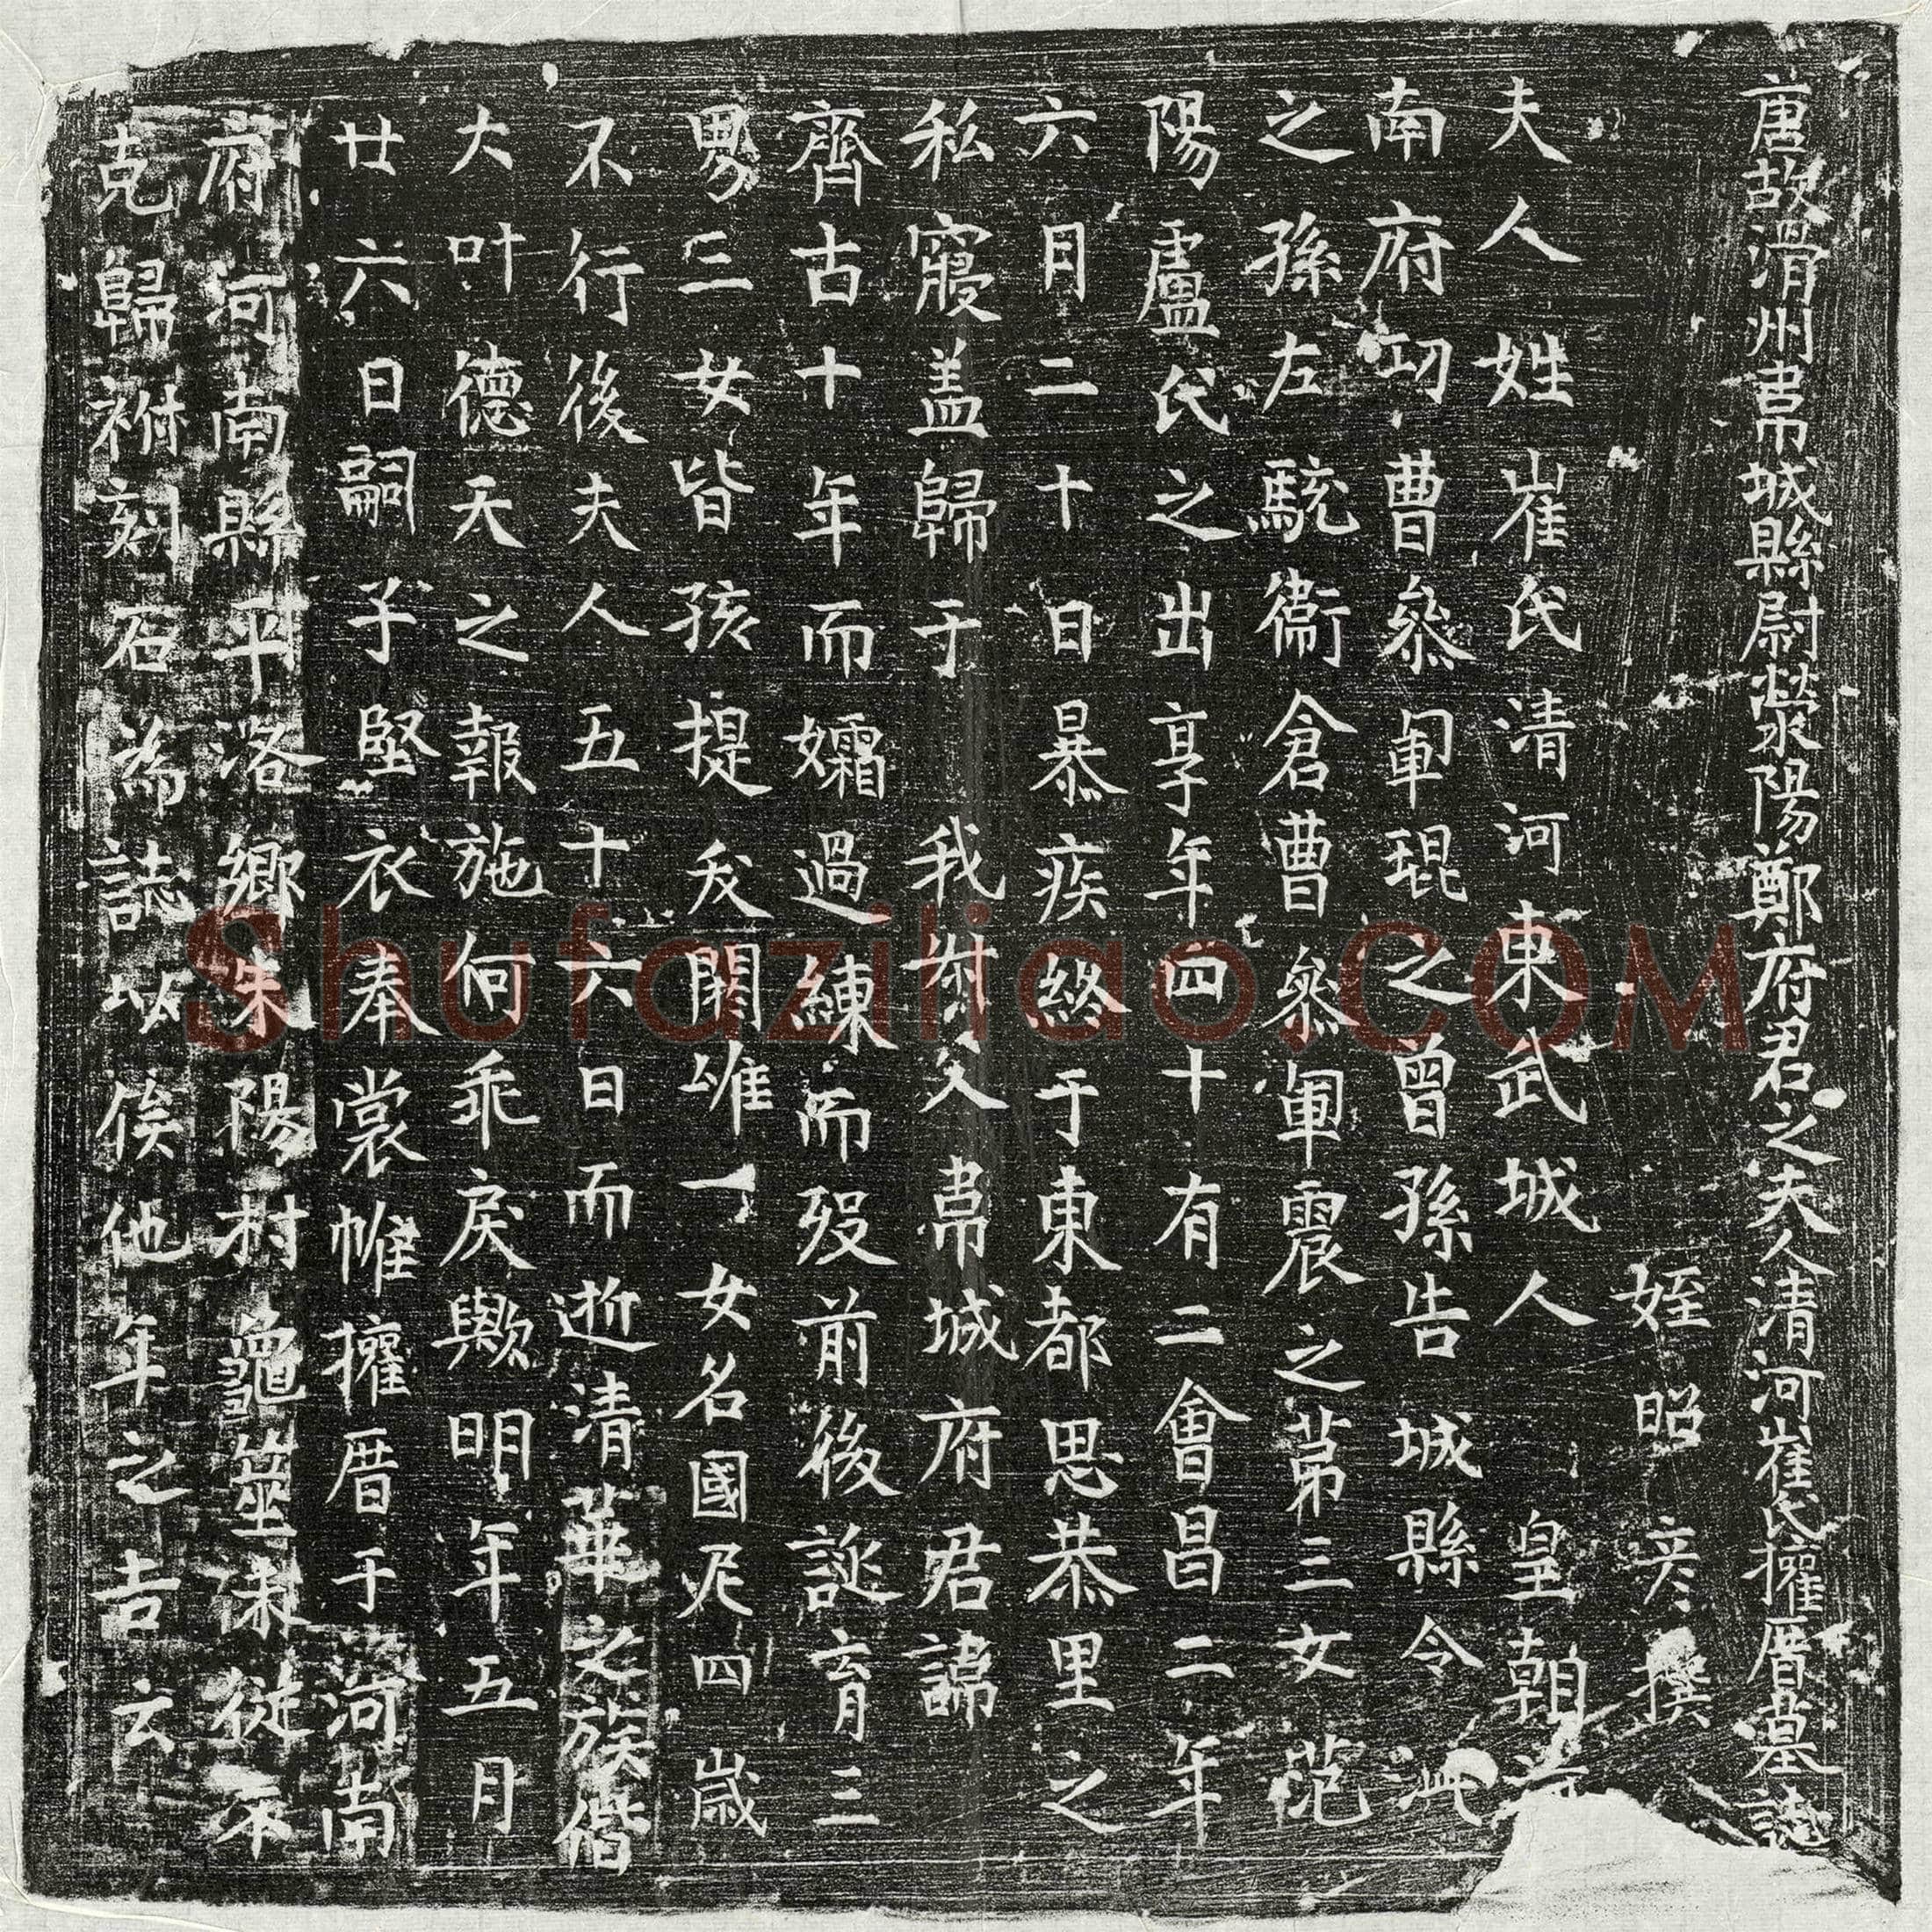 唐故滑州韋城縣尉滎陽鄭府君之夫人清河崔氏權厝墓誌
姪昭彦撰
夫人姓崔氏清河東武城人皇朝
南府功曹叅軍琨之曾孫告城縣令泚
之孫左驍衞倉曹叅軍震之苐三女范
陽盧氏之出享年四十有二會昌二年
六月二十日暴疾終于東都思恭里之
私寢盖歸于我叔父韋城府君諱
齊古十年而孀過練而歿前後誕育三
男三女皆孩提矣閼唯一女名國尼四歲
不行後夫人五十六日而逝清華之族偕
大叶德天之報施何乖戾歟明年五月
廿六日嗣子堅衣奉裳帷權厝于河南
府河南縣平洛鄉朱陽村龜筮未從不
克歸祔刻石為誌以俟他年之吉云
Shufaziliao.COM